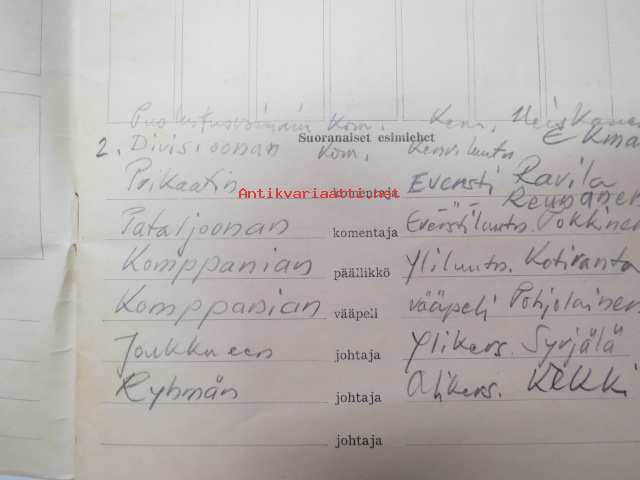 Puolustusvoimain Kom. Kenr. Heiskanen
Suoranaiset esimiehet
2. Divisioonan Kom. Kenr.luutn. Ekma
Prikaatin komentaja Eversti Ravila
Antikvariaatti.net
- " - Reunanen
Pataljoonan komentaja Everstiluutn. Tokkinen
Komppanian päällikkö Yliluutn. Kotiranta
Komppanian vääpeli vääpeli Pohjolainen
Joukkueen johtaja Ylikers. Syrjälä
Ryhmän johtaja Alikers. Kekki
johtaja